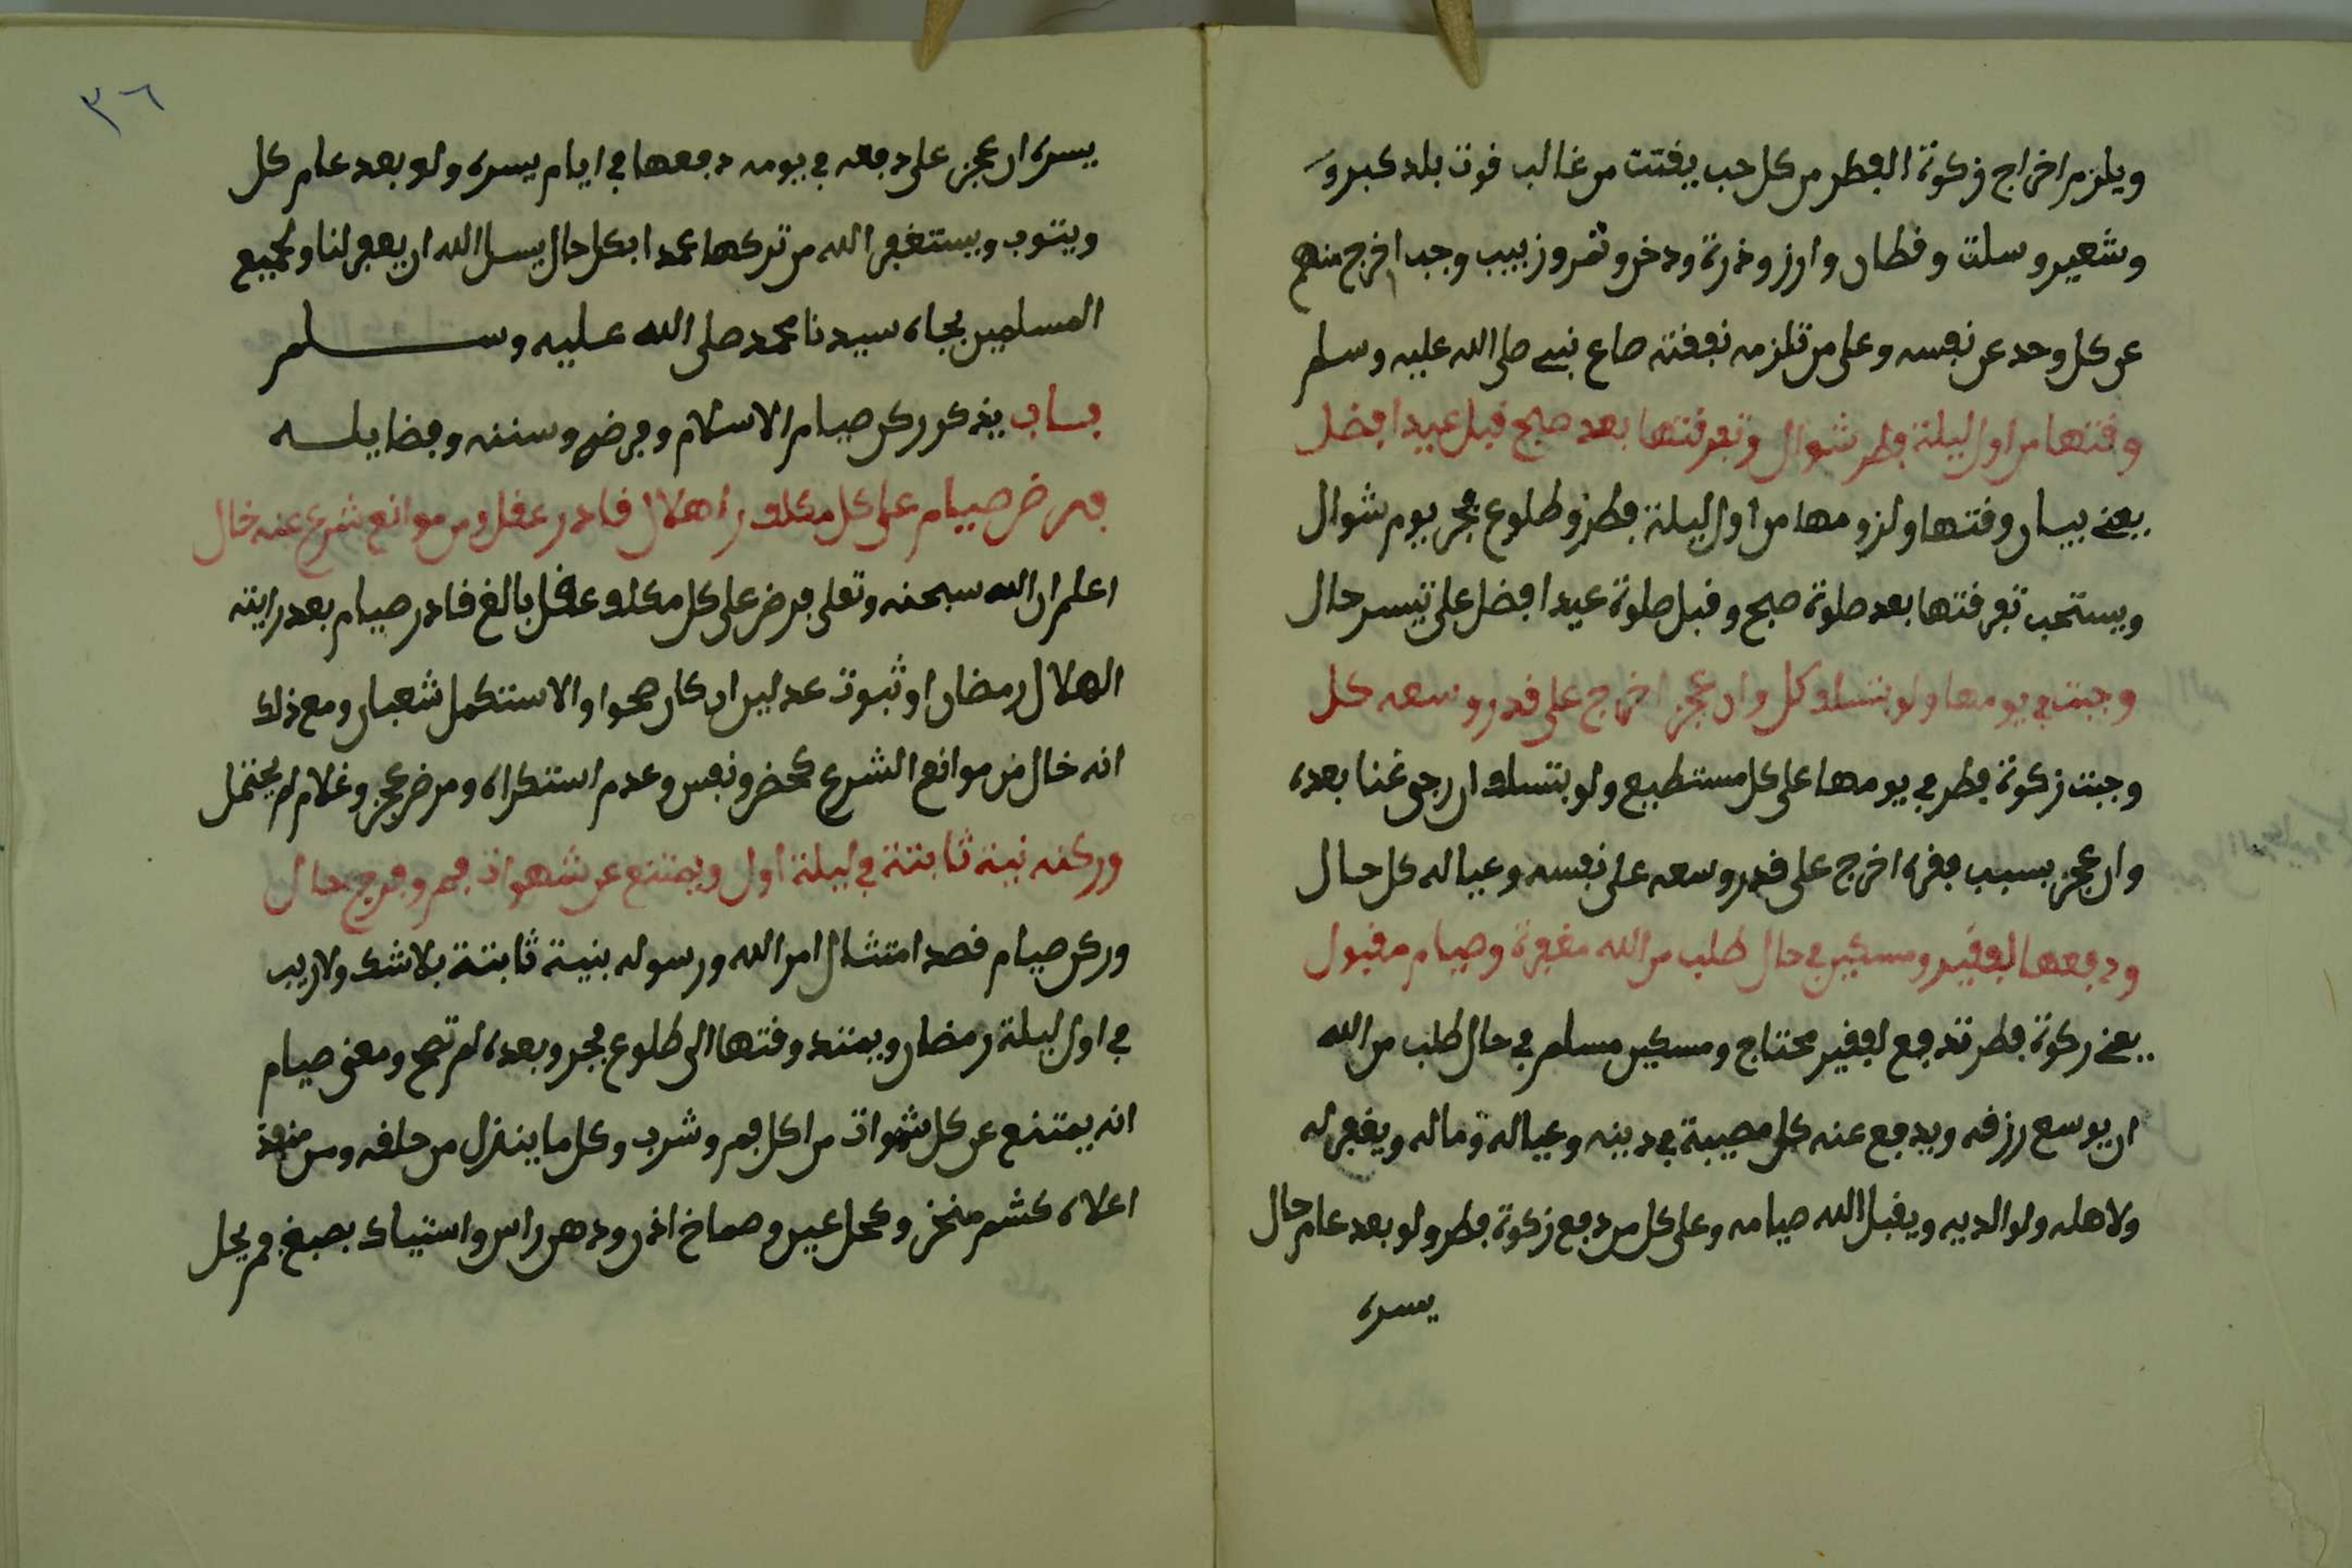 ويلزم اخراج زكوة الفطر من كل حب يقتت من غالب قوت بلد كبر و
وشعير وسلت وقطان وارز وذرة ودخن وتمر وزبيب وجب اخرج منهم
عن كل وحد عن نفسه وعلى من تلزمه نفقته صاع نبي صلى الله عليه وسلم
وقتها من اول ليلة فطر شوال وتفرقتها بعد صبح قبل عيد افضل
يعني بيان وقتها ولزومها من اول ليلة فطر وطلوع فجر يوم شوال
ويستحب تفرقتها بعد صلوة صبح وقبل صلوة عيد افضل على تيسر حال
وجبت في يومها ولو بتسلف كل وان عجز اخراج على قدر وسعه كل
وجبت زكوة فطر في يومها على كل مستطيع ولو بتسلف ان رجى غنا بعده
وان عجز بسبب فقره اخرج على قدر وسعه على نفسه وعياله كل حال
ودفعها لفقير ومسكين في حال طلب من الله مغفرة وصيام مقبول
يعني زكوة فطر تدفع لفقير محتاج ومسكين مسلم في حال طلب من الله
ان يوسع رزقه ويدفع عنه كل مصيبة في دينه وعياله وماله ويغفر له
ولاهله ولوالديه ويقبل الله صيامه وعلى كل من دفع زكوة فطر ولو بعد عام حال
يسره
٣٦
يسره ان عجز على دفعه في يومه دفعها في ايام يسره ولو بعد عام كل
ويتوب ويستغفر الله من تركها عمدا بكل حال يسل الله ان يغفر لنا ولجميع
المسلمين بجاه سيدنا محمد صلى الله عليه وسلم
باب يذكر ركن صيام الاسلام وفرضه وسننه وفضايله
فرض صيام على كل مكلف راهلال قادر عقل ومن موانع شرع عنه خال
اعلم ان الله سبحنه وتعلى فرض على كل مكلف عقل بالغ قادر صيام بعد رايته
الهلال رمضان او ثبوت عدلين ان كان صحوا والا ستكمل شعبان ومع ذلك
انه خال من موانع الشرع كحض ونفس وعدم استكراه ومرض عجز وغلام لم يحتمل
وركنه نية ثابتة في ليلة اول ويمتنع عن شهوات فم وفرج حال
وركن صيام قصد امتثال امر الله ورسوله بنية ثابتة بلا شك ولا ريب
في اول ليلة رمضان ويمتد وقتها الى طلوع فجر وبعده لم تصح ومعنى صيام
انه يمتنع عن كل شهوات من اكل فم وشرب وكل ما ينزل من حلقه ومن منفذ
اعلاه كشم منخر وكحل عين وصماخ اذن ودهن راس واستياك بصبغ فم يحل